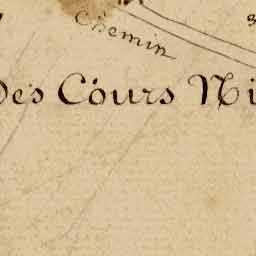 Chemin
des Cours Ni